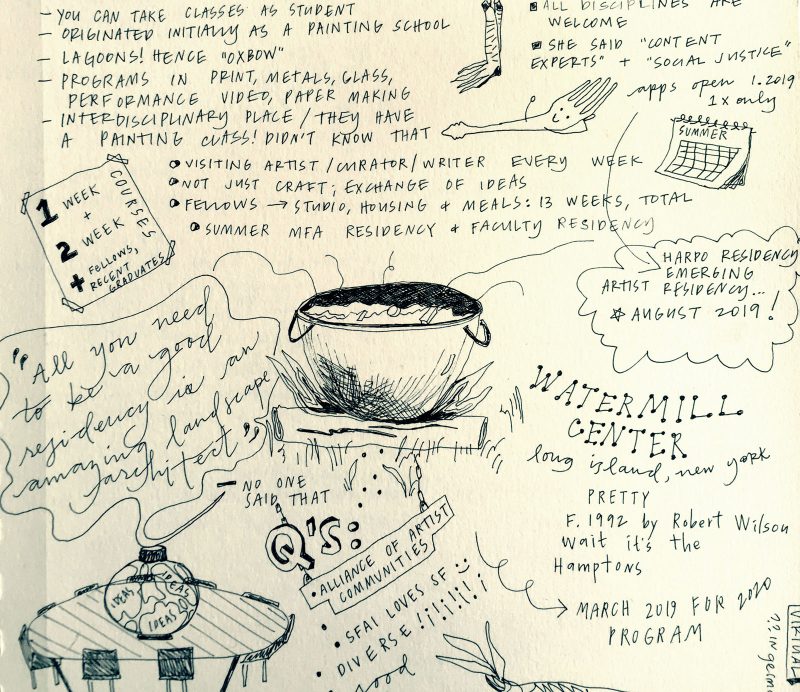 – YOU CAN TAKE CLASSES AS STUDENT
– ORIGINATED INITIALLY AS A PAINTING SCHOOL
– LAGOONS! HENCE "OXBOW"
– PROGRAMS IN PRINT, METALS, GLASS,
PERFORMANCE VIDEO, PAPER MAKING
– INTERDISCIPLINARY PLACE / THEY HAVE
A PAINTING CLASS! DIDN'T KNOW THAT
ALL DISCIPLINES ARE
WELCOME
SHE SAID "CONTENT
EXPERTS" + "SOCIAL JUSTICE"
apps open 1.2019
1x only
SUMMER
VISITING ARTIST / CURATOR / WRITER EVERY WEEK
NOT JUST CRAFT; EXCHANGE OF IDEAS
FELLOWS → STUDIO, HOUSING & MEALS: 13 WEEKS, TOTAL
SUMMER MFA RESIDENCY & FACULTY RESIDENCY
1 WEEK
+
2 WEEK
COURSES
+ FELLOWS,
RECENT
GRADUATES
HARPO RESIDENCY
EMERGING
ARTIST RESIDENCY...
☆ AUGUST 2019!
"All you need
to be a good
residency is an
amazing landscape
architect"
– NO ONE
SAID THAT
WATERMILL
CENTER
long island, new york
PRETTY
F. 1992 by Robert Wilson
wait it's the
Hamptons
→ MARCH 2019 FOR 2020
PROGRAM
Q'S:
• ALLIANCE OF ARTIST
COMMUNITIES
• SFAI LOVES SF
• DIVERSE !¡!¡!¡!¡
good
IDEAS
IDEAS
IDEAS
VIRTUAL